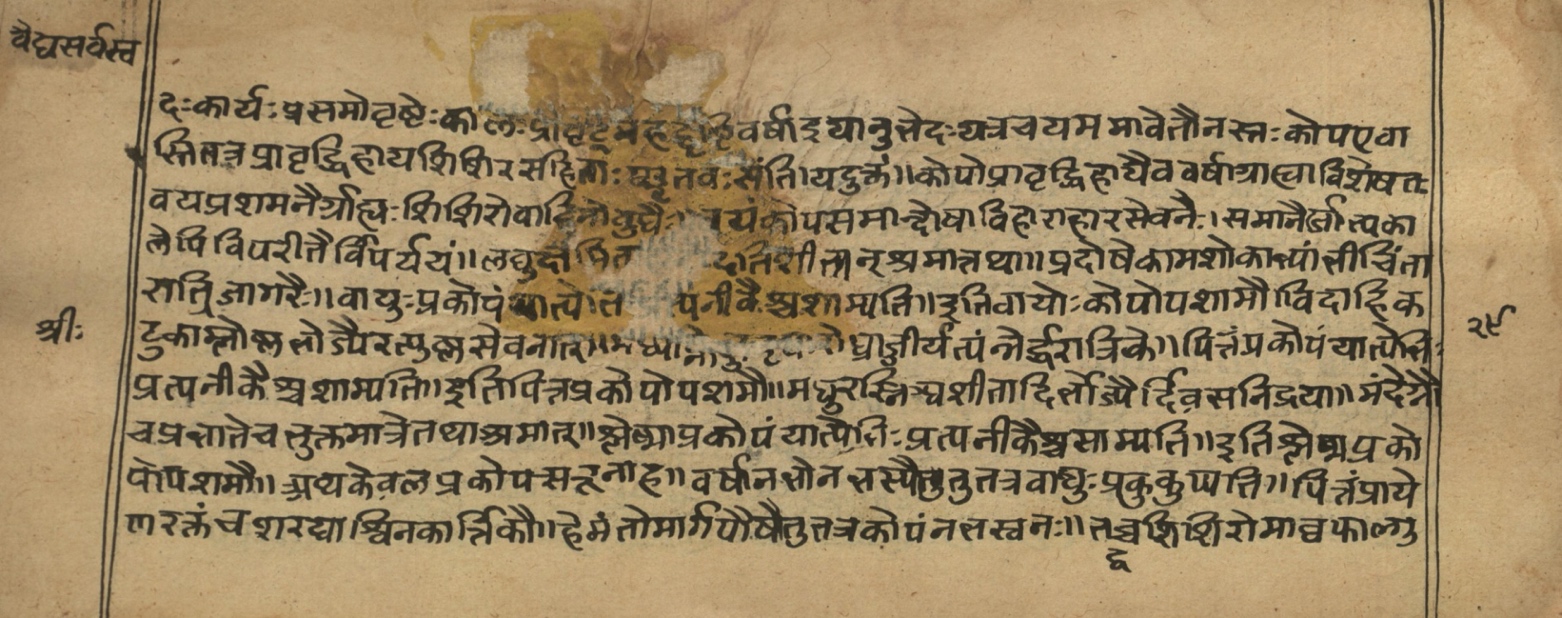 वैद्यसर्वस्व
दःकार्यःप्रसमोतृष्टेःकालःप्रावृट् वर्षाद्वयानुभेदःयत्रचयममावेतौनस्तःकोपएवा
स्तितत्रप्रावृद्विहायशिशिरसहिताःषडृतवःसंति।यदुक्तं॥कोपोप्रावृद्विहायैववर्षाग्राह्याविशेषतः
वयप्रशमनैर्ग्राह्यःशिशिरोवादिनोबुधैः। चयंकोपसमान्दोषाविहाराहारसेवनैः।समानैर्यांत्यका
लेपिविपरीतैर्विपर्ययं॥लघु दतिशीतान्श्रमात्तथा॥प्रदोषेकामशोकाभ्यांभीचिंता
रात्रिजागरैः॥वायुःप्रकोपंयात्येति पनीकैश्चशाम्यति॥इतिवायोःकोपोपशामौ।विदाहिक
टुकाम्लोष्णभोज्यैरत्युष्णसेवनात्॥मध्याह्ने जीर्यत्यंनेर्द्धरात्रिके॥पित्तंप्रकोपंयात्येति
प्रत्यनीकैश्चशाम्यति॥इतिपित्तप्रकोपोपशमौ॥मधुरस्निग्धशीतादिभोज्यैर्दिवसनिद्रया॥मंदेग्नौ
चप्रभातेचभुक्तमात्रेतथाश्रमात्॥श्लेष्माप्रकोपंयात्येतिःप्रत्यनीकैश्चसाम्यति॥इतिश्लेष्मप्रको
पोपशमौ॥अथकेवलप्रकोपसत्रूनाह॥वर्षानभोनभस्यौतुतुतत्रवायुःप्रकुकुप्यति॥पित्तंप्राये
णरक्तंचशरद्याश्विनकार्त्तिकौ॥हेमंतोमार्गपौषौतुतत्रकोपंनभस्वनः॥तद्वच्छिशिरोमाघफाल्गु
द्व
श्रीः
२९